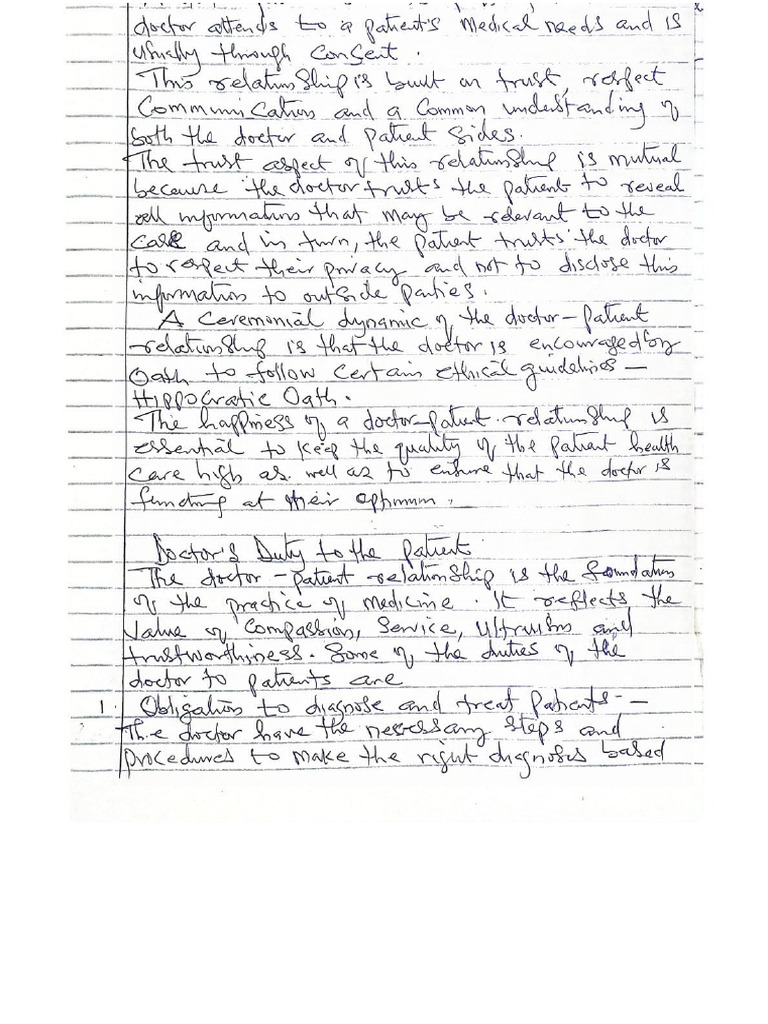 doctor attends to a patient's medical needs and is
usually through consent.
This relationship is built on trust, respect
Communication and a common understanding of
both the doctor and patient sides.
The trust aspect of this relationship is mutual
because the doctor trusts the patients to reveal
all information that may be relevant to the
case and in turn, the patient trusts the doctor
to respect their privacy and not to disclose this
information to outside parties.
A ceremonial dynamic of the doctor-patient
relationship is that the doctor is encouraged by
Oath to follow certain ethical guidelines —
Hippocratic Oath.
The happiness of a doctor-patient relationship is
essential to keep the quality of the patient health
care high as well as to ensure that the doctor is
functing at their optimum.
Doctor's Duty to the patient
The doctor-patient relationship is the foundation
of the practice of medicine. It reflects the
value of compassion, service, ultruism and
trustworthiness. Some of the duties of the
doctor to patients are
1. Obligation to diagnose and treat patients:-
The doctor have the necessary steps and
procedures to make the right diagnosis based